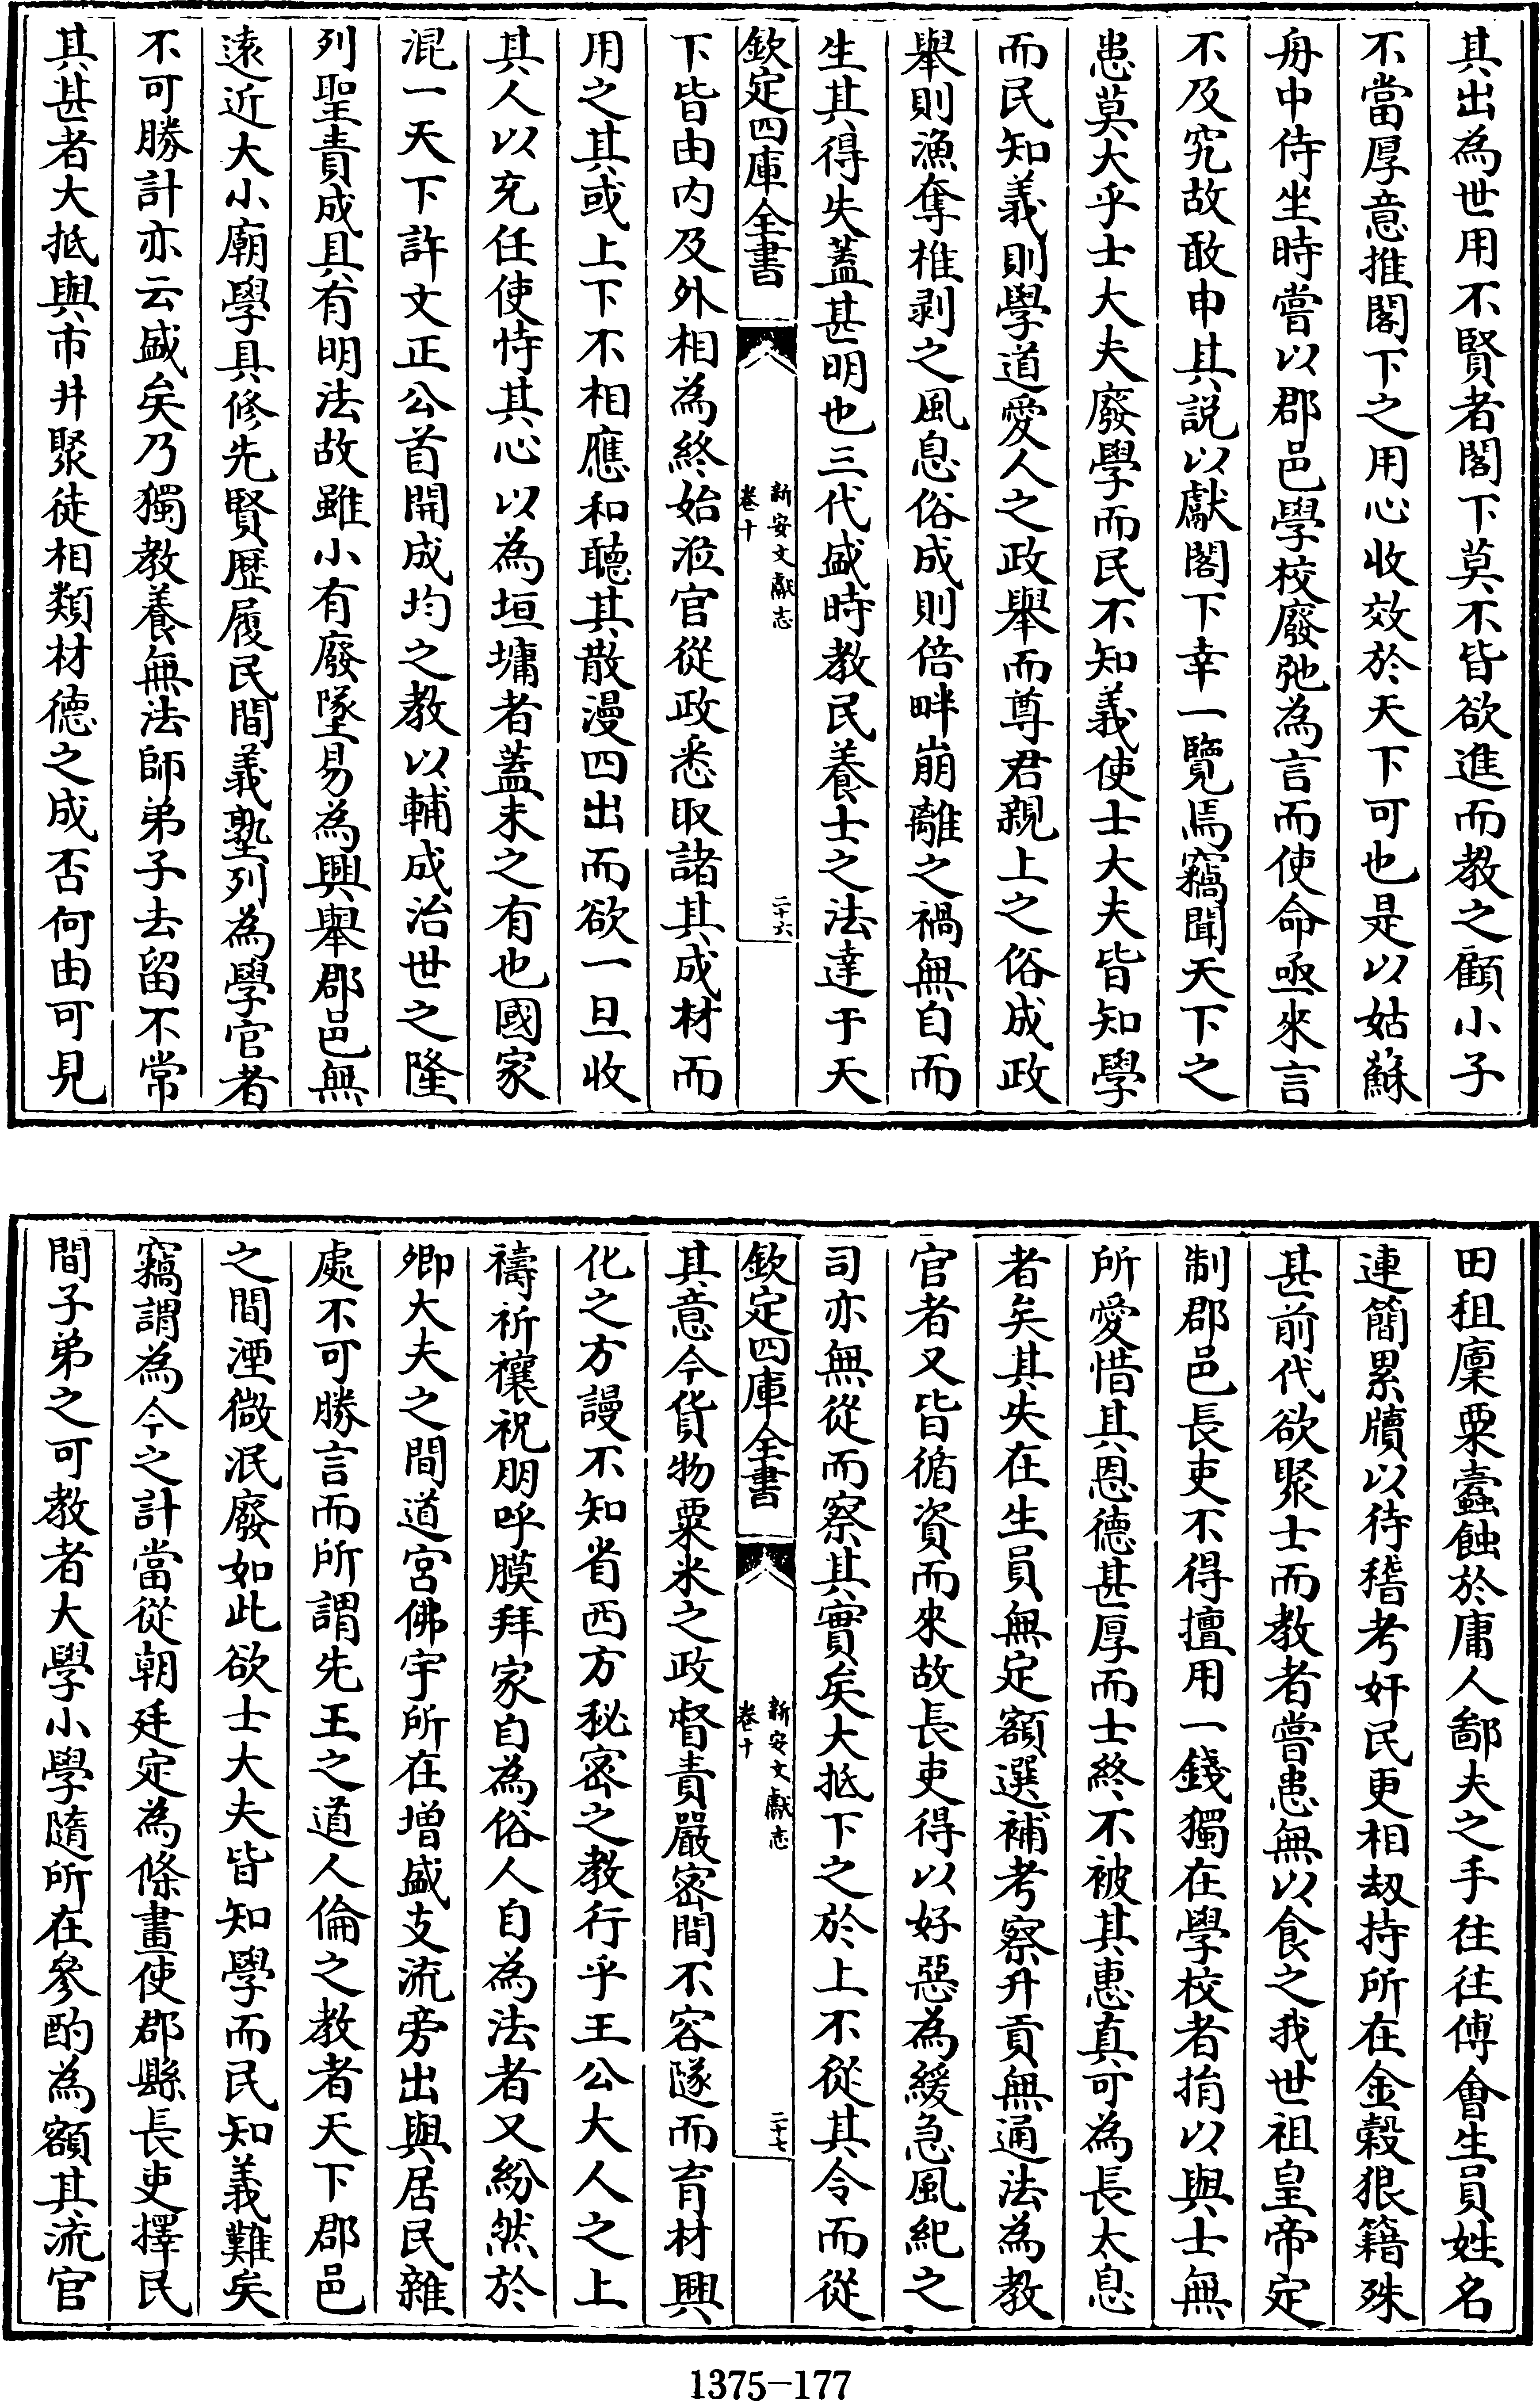 其出為世用不賢者閣下莫不皆欲進而教之顧小子
不當厚意推閣下之用心收效於天下可也是以姑蘇
舟中侍坐時嘗以郡邑學校廢弛為言而使命亟來言
不及究故敢申其説以獻閣下幸一覽焉竊聞天下之
患莫大乎士大夫廢學而民不知義使士大夫皆知學
而民知義則學道愛人之政舉而尊君親上之俗成政
舉則漁奪椎剥之風息俗成則倍畔崩離之禍無自而
生其得失蓋甚明也三代盛時教民養士之法達于天
欽定四庫全書
新安文獻志
卷十
二十六
下皆由内及外相為終始涖官從政悉取諸其成材而
用之其或上下不相應和聽其散漫四出而欲一旦收
其人以充任使恃其心以為垣墉者蓋未之有也國家
混一天下許文正公首開成均之教以輔成治世之隆
列聖責成具有明法故雖小有廢墜易為興舉郡邑無
遠近大小廟學具修先賢歷履民間義塾列為學官者
不可勝計亦云盛矣乃獨教養無法師弟子去留不常
其甚者大抵與市井聚徒相類材德之成否何由可見
田租廩粟蠧蝕於庸人鄙夫之手往往傅會生員姓名
連簡累牘以待稽考奸民更相刼持所在金榖狼籍殊
甚前代欲聚士而教者嘗患無以食之我世祖皇帝定
制郡邑長吏不得擅用一錢獨在學校者捐以與士無
所愛惜其恩德甚厚而士終不被其惠真可為長太息
者矣其失在生員無定額選補考察升貢無通法為教
官者又皆循資而來故長吏得以好惡為緩急風紀之
司亦無從而察其實矣大抵下之於上不從其令而從
欽定四庫全書
新安文獻志
卷十
二十七
其意今貨物粟米之政督責嚴密間不容隧而育材興
化之方謾不知省西方秘密之教行乎王公大人之上
禱祈禳祝朋呼膜拜家自為俗人自為法者又紛然於
卿大夫之間道宫佛宇所在增盛支流旁出與居民雜
處不可勝言而所謂先王之道人倫之教者天下郡邑
之間湮微泯廢如此欲士大夫皆知學而民知義難矣
竊謂為今之計當從朝廷定為條畫使郡縣長吏擇民
間子弟之可教者大學小學隨所在參酌為額其流官
1375-177